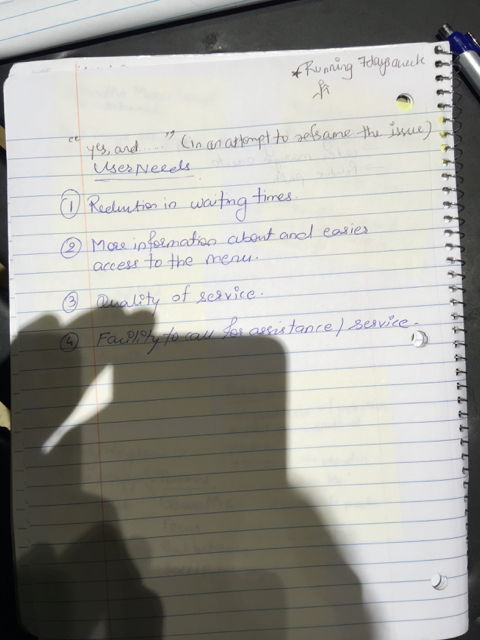 *Running 7days a week
"yes, and ....." (in an attempt to reframe the issue)
User Needs
① Reduction in waiting times.
② More information about and easier
access to the menu.
③ Quality of service.
④ Facility to call for assistance / service.